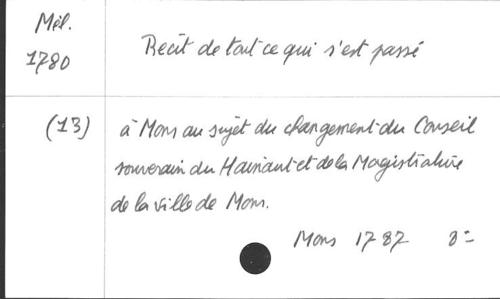 Mél.
1780
Récit de tout ce qui s'est passé
(13)
à Mons au sujet du changement du Conseil
souverain du Hainaut et de la Magistrature
de la ville de Mons.
Mons 1787 8=